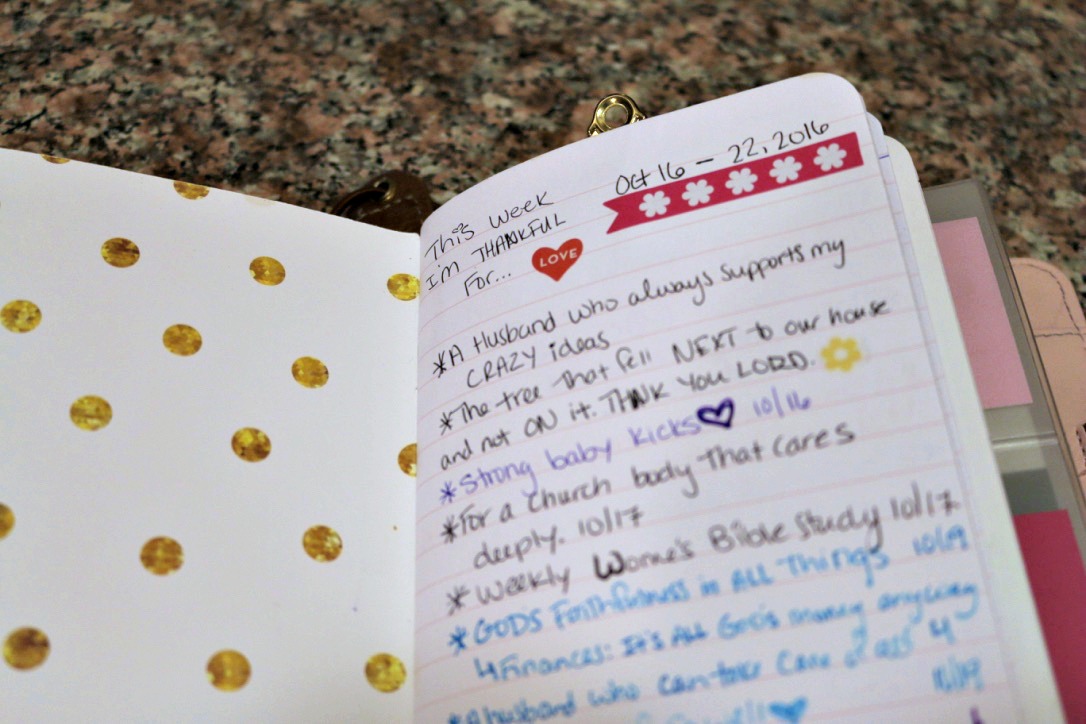 Oct 16 - 22, 2016
This week
I'm THANKFUL
For...
LOVE
*A Husband who always supports my
CRAZY ideas
*The tree That fell NEXT to our house
and not ON it. THANK YOU LORD.
*Strong baby kicks 10/16
*For a church body That cares
deeply. 10/17
*Weekly Wome's Bible Study 10/17
*GOD'S Faithfulness in ALL Things 10/19
4 Finances: It's ALL God's money anyway
*A husband who can take care of
10/19